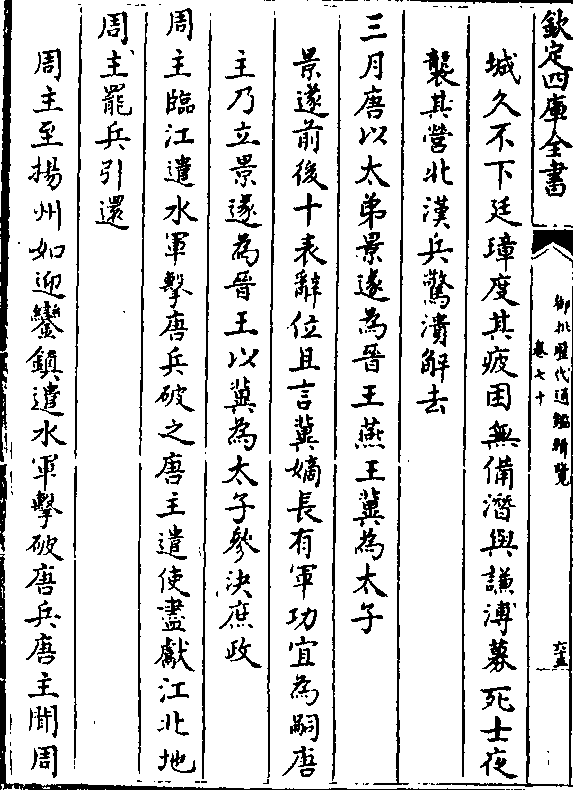 欽定四庫全書
御批歷代通鑑輯覽
卷七十
城久不下廷璋度其疲困無備潛與謙溥募死士夜
襲其營北漢兵驚潰解去
三月唐以太弟景遂為晉王燕王冀為太子
景遂前後十表辭位且言冀嫡長有軍功宜為嗣唐
主乃立景遂為晉王以冀為太子參決庶政
周主臨江遣水軍擊唐兵破之唐主遣使盡獻江北地
周主罷兵引還
周主至揚州如迎鑾鎮遣水軍擊破唐兵唐主聞周